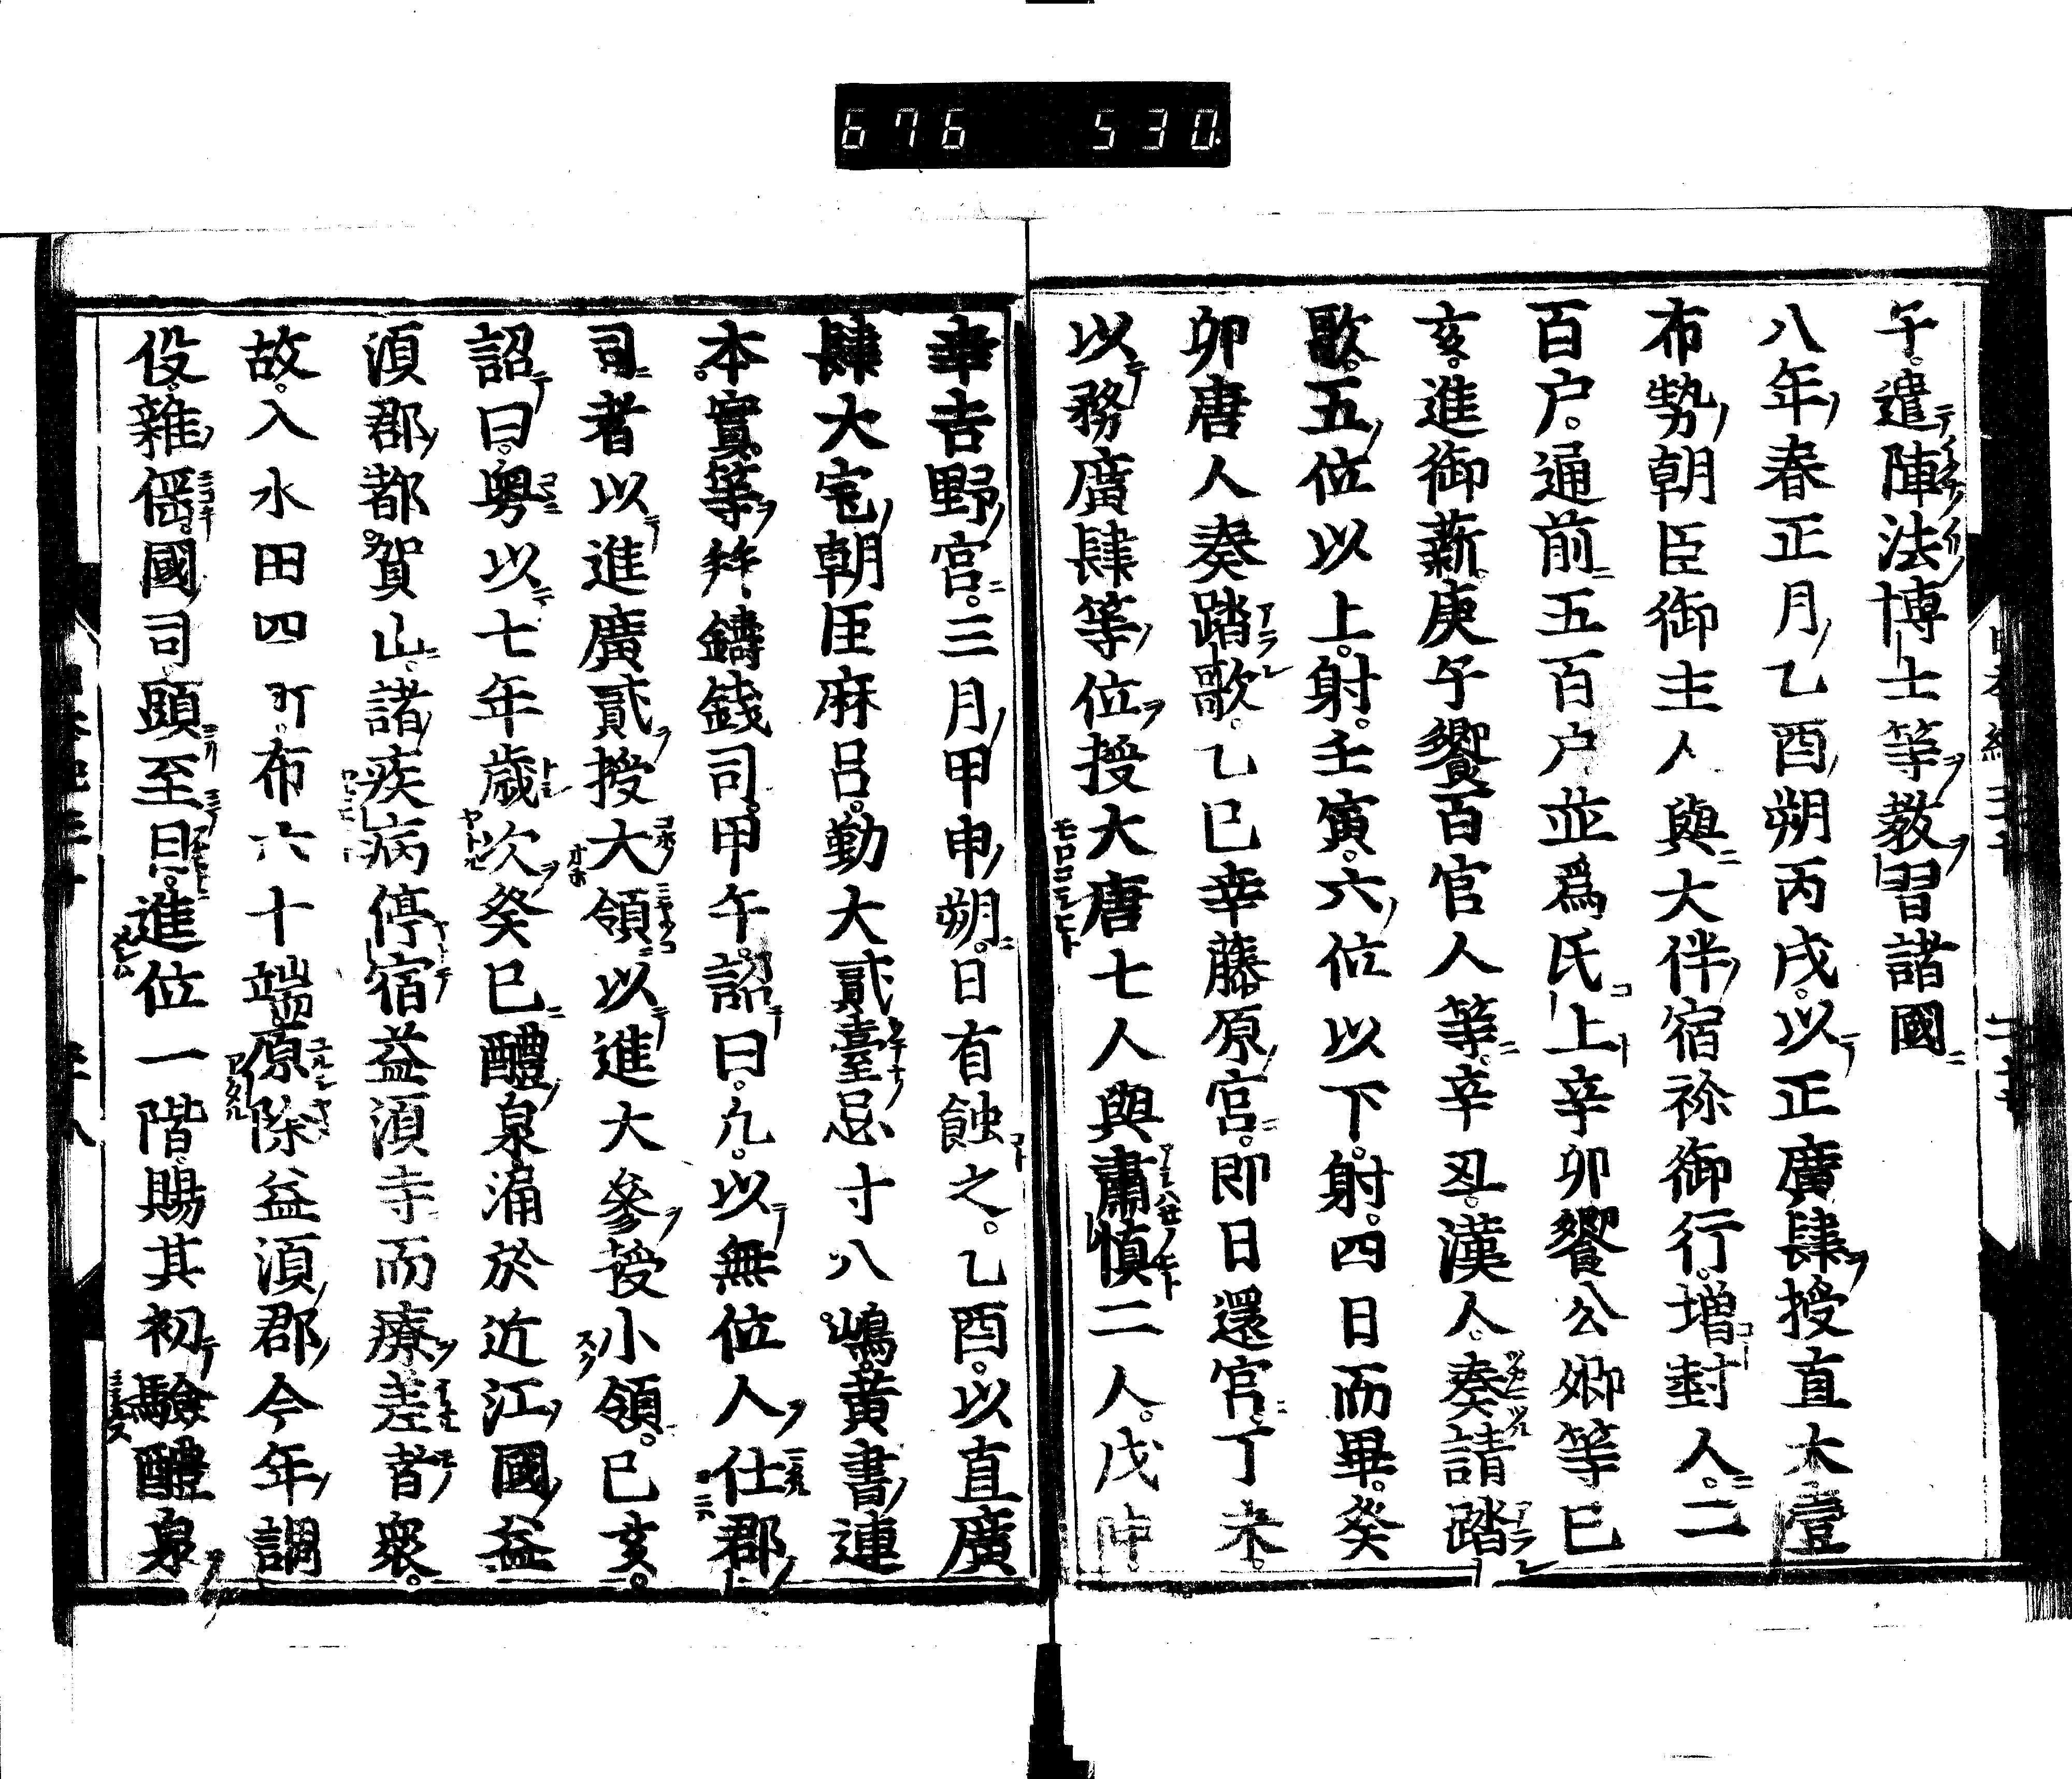 676 530.
午。遣陣法博士等教習諸國
八年春正月乙酉朔丙戌。以正廣肆授直大壹
布勢朝臣御主人與大伴宿祢御行。増封人。二
百户。通前五百户並爲氏上辛卯饗公卿等已
亥。進御薪。庚午饗百官人等。辛丑。漢人。奏請踏
歌。五位以上。射。壬寅。六位以下。射。四日而畢。癸
卯唐人奏踏歌。乙巳幸藤原宮。即日還宮。丁未。
以務廣肆等位授大唐七人與肅慎二人。戊申。
幸吉野宮。三月甲申朔。日有蝕之。乙酉。以直廣
肆大宅朝臣麻呂。勤大貳臺忌寸八嶋。黄書連
本實等。并鑄錢司。甲午。詔曰。凢。以無位人仕郡
司者以進廣貳授大領以進大參授小領。已亥。
詔曰。粤以七年歳次癸巳醴泉涌於近江國益
湏郡都賀山。諸疾病停宿益湏寺而療差者衆。
故。入水田四町。布六十端。原除益湏郡今年調
伇。雜徭。國司頭至目。進位一階。賜其初驗醴泉